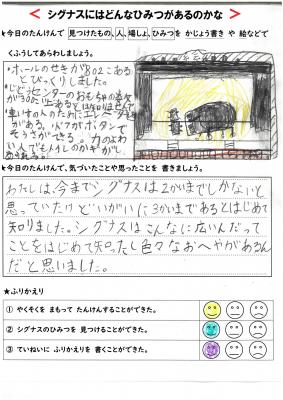 < シグナスにはどんなひみつがあるのかな >
★今日のたんけんで 見つけたもの、人、場しょ、ひみつを かじょう書き や 絵などで
くふうしてあらわしましょう。
・ホールのせきが802こある
とびっくりしました。
・じどうセンターのおもちゃの
が300こ
・車いすの人のためにエレベーター
がある。
い人でも
★今日のたんけんで、気づいたことや思ったことを 書きましょう。
わたしは今までシグナスは2かいまでしかないと
思っていたけどいがいに3かいまであるとはじめて
知りました。シグナスはこんなに広いんだって
ことをはじめて知ったし色々なおへやがあるん
だと思いました。
★ふりかえり
① やくそくを まもって たんけんすることができた。
② シグナスのひみつを 見つけることができた。
③ ていねいに ふりかえりを 書くことができた。